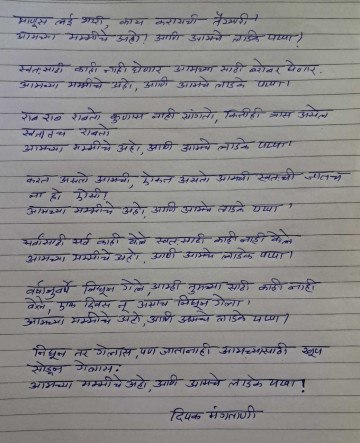 माणूस लई गुणी, काय करायची
आमच्या मम्मीचे अहो! आणि आमचे लाडके पप्पा!
स्वतःसाठी काही नाही घेणार आमच्या साठी बरोबर घेणार.
आमच्या मम्मीचे अहो, आणि आमचे लाडके पप्पा!
राब राब राबतो कुणास नाही सांगतो, कितीही त्रास असेल
स्वतःतच राबतो
आमच्या मम्मीचे अहो, आणि आमचे लाडके पप्पा!
करत असतो आमची, ऐकत असतो आमची स्वतःची
ना हो ऐसी!
आमच्या मम्मीचे अहो, आणि आमचे लाडके पप्पा!
सर्वांसाठी सर्व काही केले स्वतःसाठी काही नाही केले
आमच्या मम्मीचे अहो, आणि आमचे लाडके पप्पा!
वर्षानुवर्षे निघून गेले, आम्ही तुमच्या साठी काही नाही
केले, एक दिवस तू असाच निघून गेला!
आमच्या मम्मीचे अहो, आणि आमचे लाडके पप्पा!
निघून तर गेलास, पण जातानाही आमच्यासाठी खूप
सोडून गेलास.
आमच्या मम्मीचे अहो, आणि आमचे लाडके पप्पा!
दिपक मंगताणी